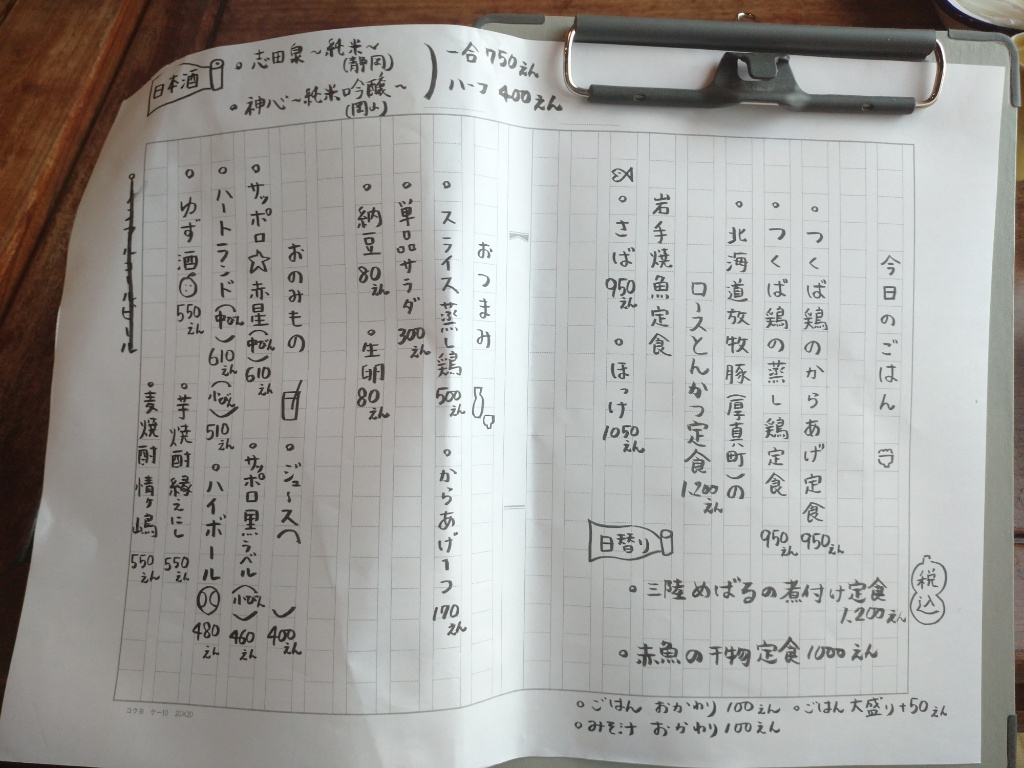 今日のごはん
。つくば鶏のからあげ定食 950えん
。つくば鶏の蒸し鶏定食 950えん
。北海道放牧豚(厚真町)の
ロースとんかつ定食 1,200えん
岩手焼魚定食
。さば 950えん 。ほっけ 1050えん
日替り
。三陸めばるの煮付け定食
1,200えん
。赤魚の干物定食 1000えん
税込
。ごはん おかわり 100えん 。ごはん大盛り+50えん
。みそ汁 おかわり 100えん
おつまみ
。スライス蒸し鶏 500えん 。からあげ1つ 170えん
。単品サラダ 300えん
。納豆 80えん 。生卵 80えん
おのみもの
。ジュース 400えん
。サッポロ☆赤星(中びん) 610えん 。サッポロ黒ラベル(小びん) 460えん
。ハートランド(中びん) 610えん (小びん) 510えん 。ハイボール 480えん
。ゆず酒 550えん 。芋焼酎 縁えにし 550えん
。麦焼酎 情け嶋 550えん
日本酒
。志田泉〜純米〜
(静岡)
。神心〜純米吟醸〜
(岡山)
一合 750えん
ハーフ 400えん
コクヨ ケー10 20×20